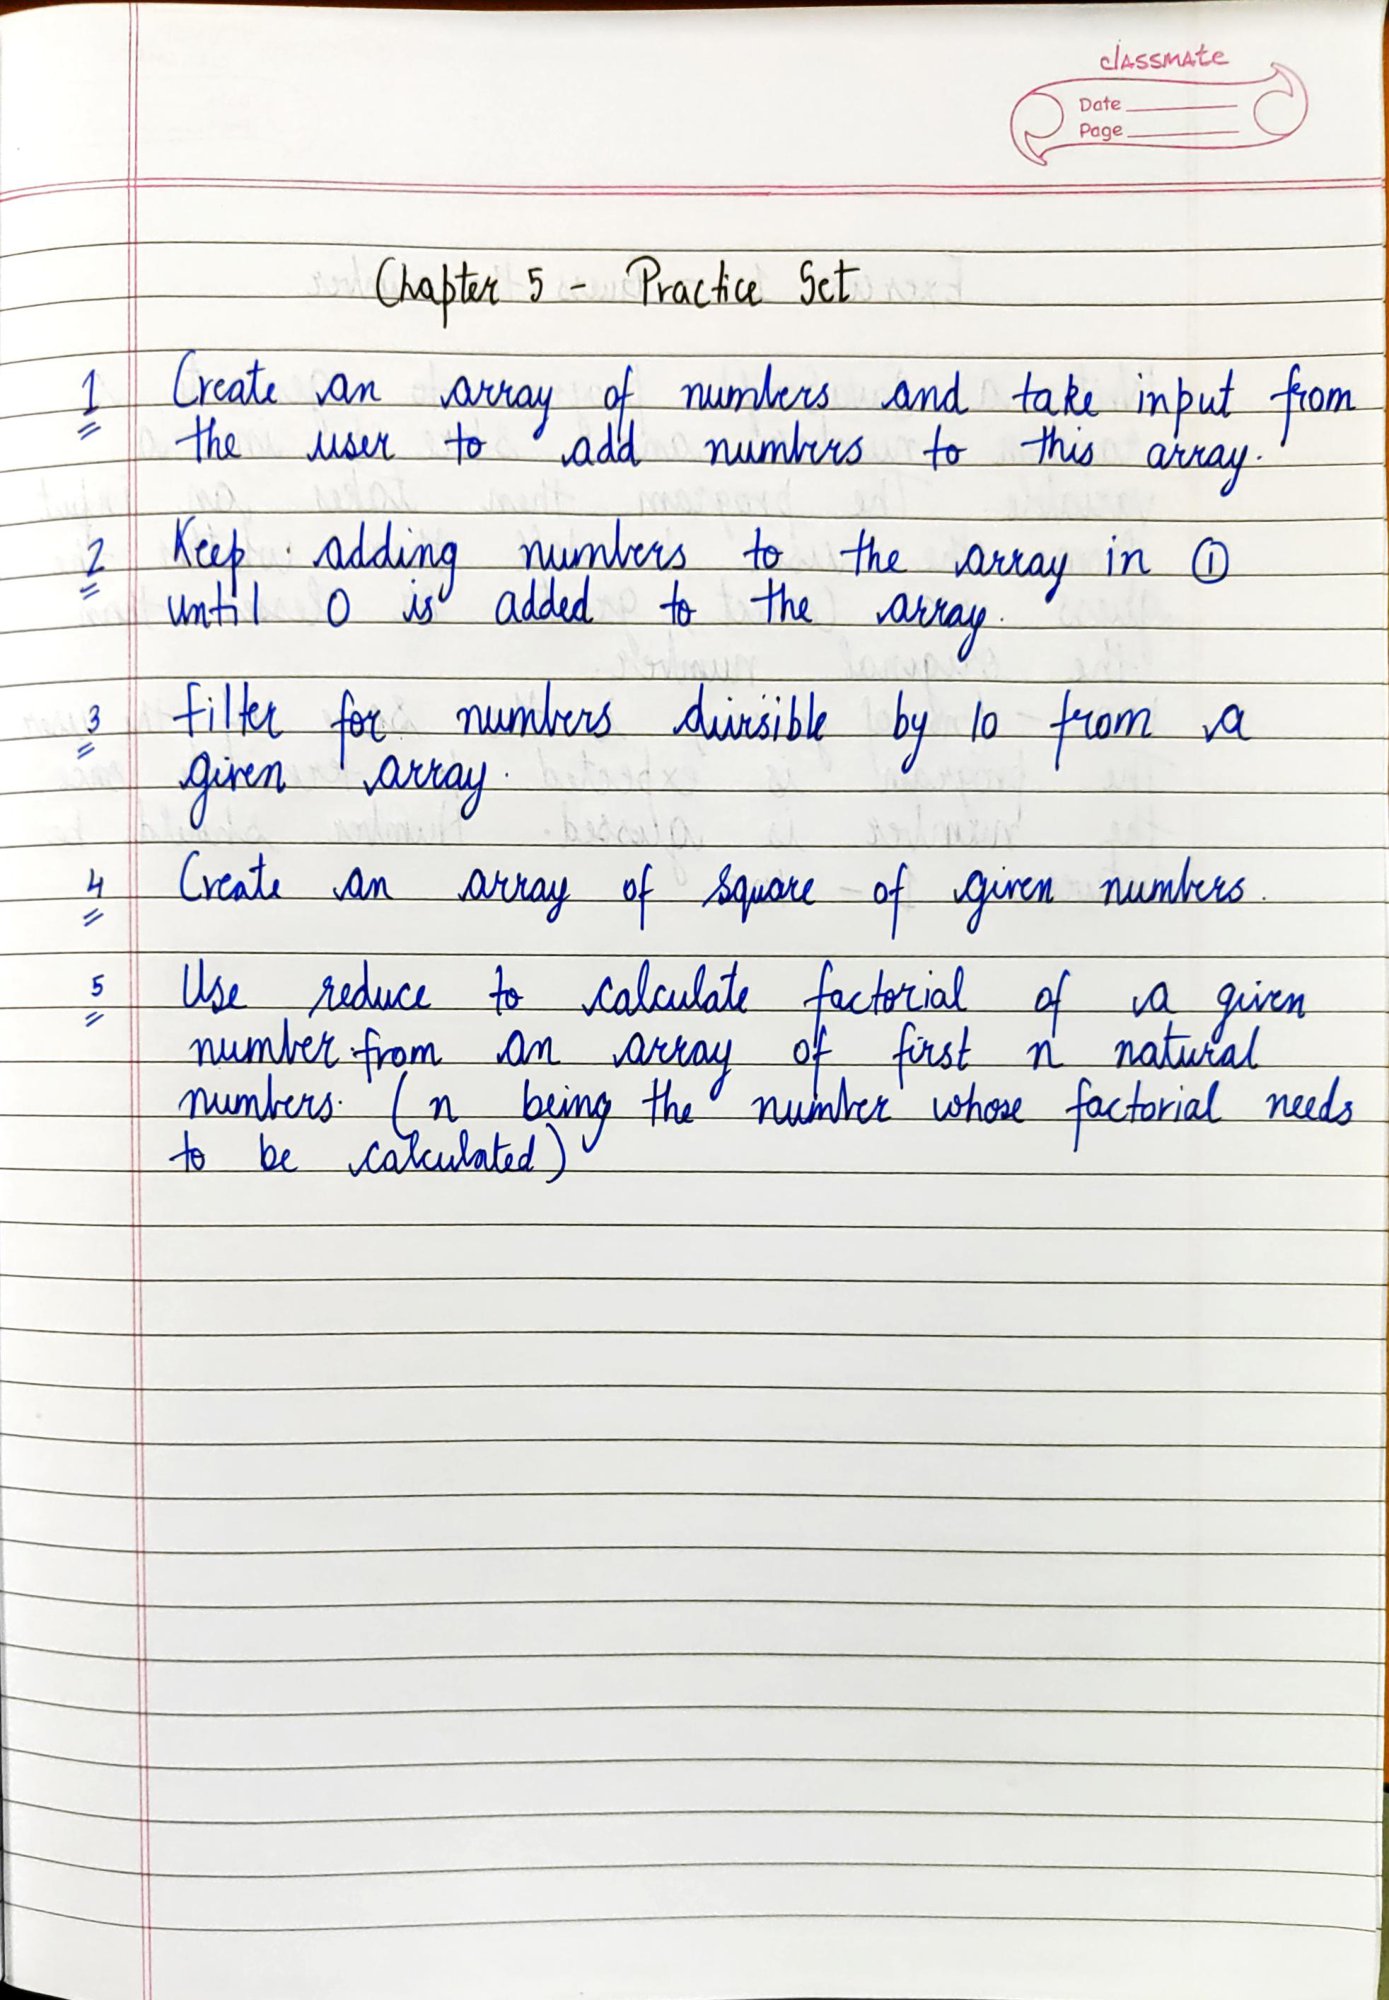 classmate
Date
Page
Chapter 5 - Practice Set
1 Create an array of numbers and take input from
the user to add numbers to this array.
2 Keep adding numbers to the array in ①
until 0 is added to the array.
3 Filter for numbers divisible by 10 from a
given array.
4 Create an array of square of given numbers.
5 Use reduce to calculate factorial of a given
number from an array of first n natural
numbers. (n being the number whose factorial needs
to be calculated)